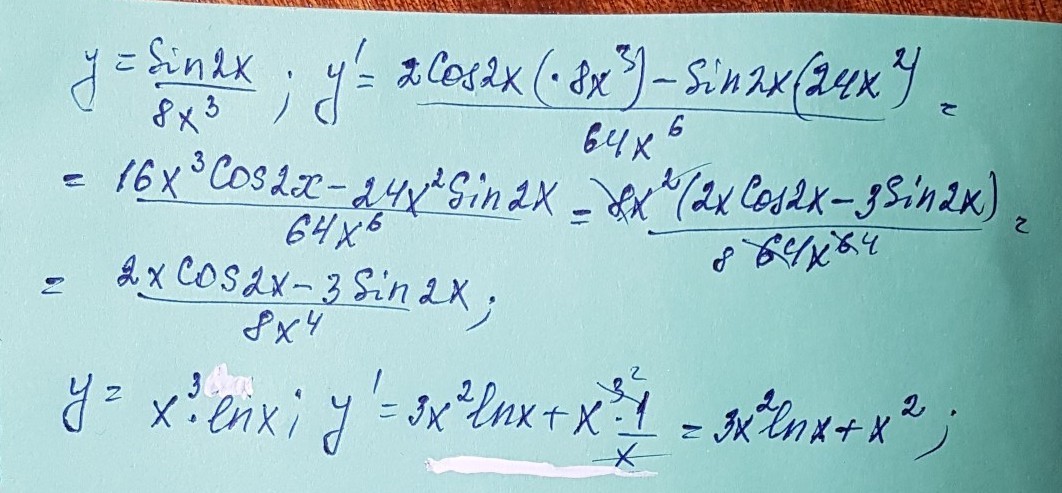 y = Sin2x / 8x³ ; y' = 2Cos2x(·8x³) - Sin2x(24x²) / 64x⁶ =
= 16x³Cos2x - 24x²Sin2x / 64x⁶ = 8x²(2xCos2x - 3Sin2x) / 8 64x⁶ 4 =
= 2xCos2x - 3Sin2x / 8x⁴ ;
y = x³·lnx ; y' = 3x²lnx + x³ ² · 1/x = 3x²lnx + x² ;